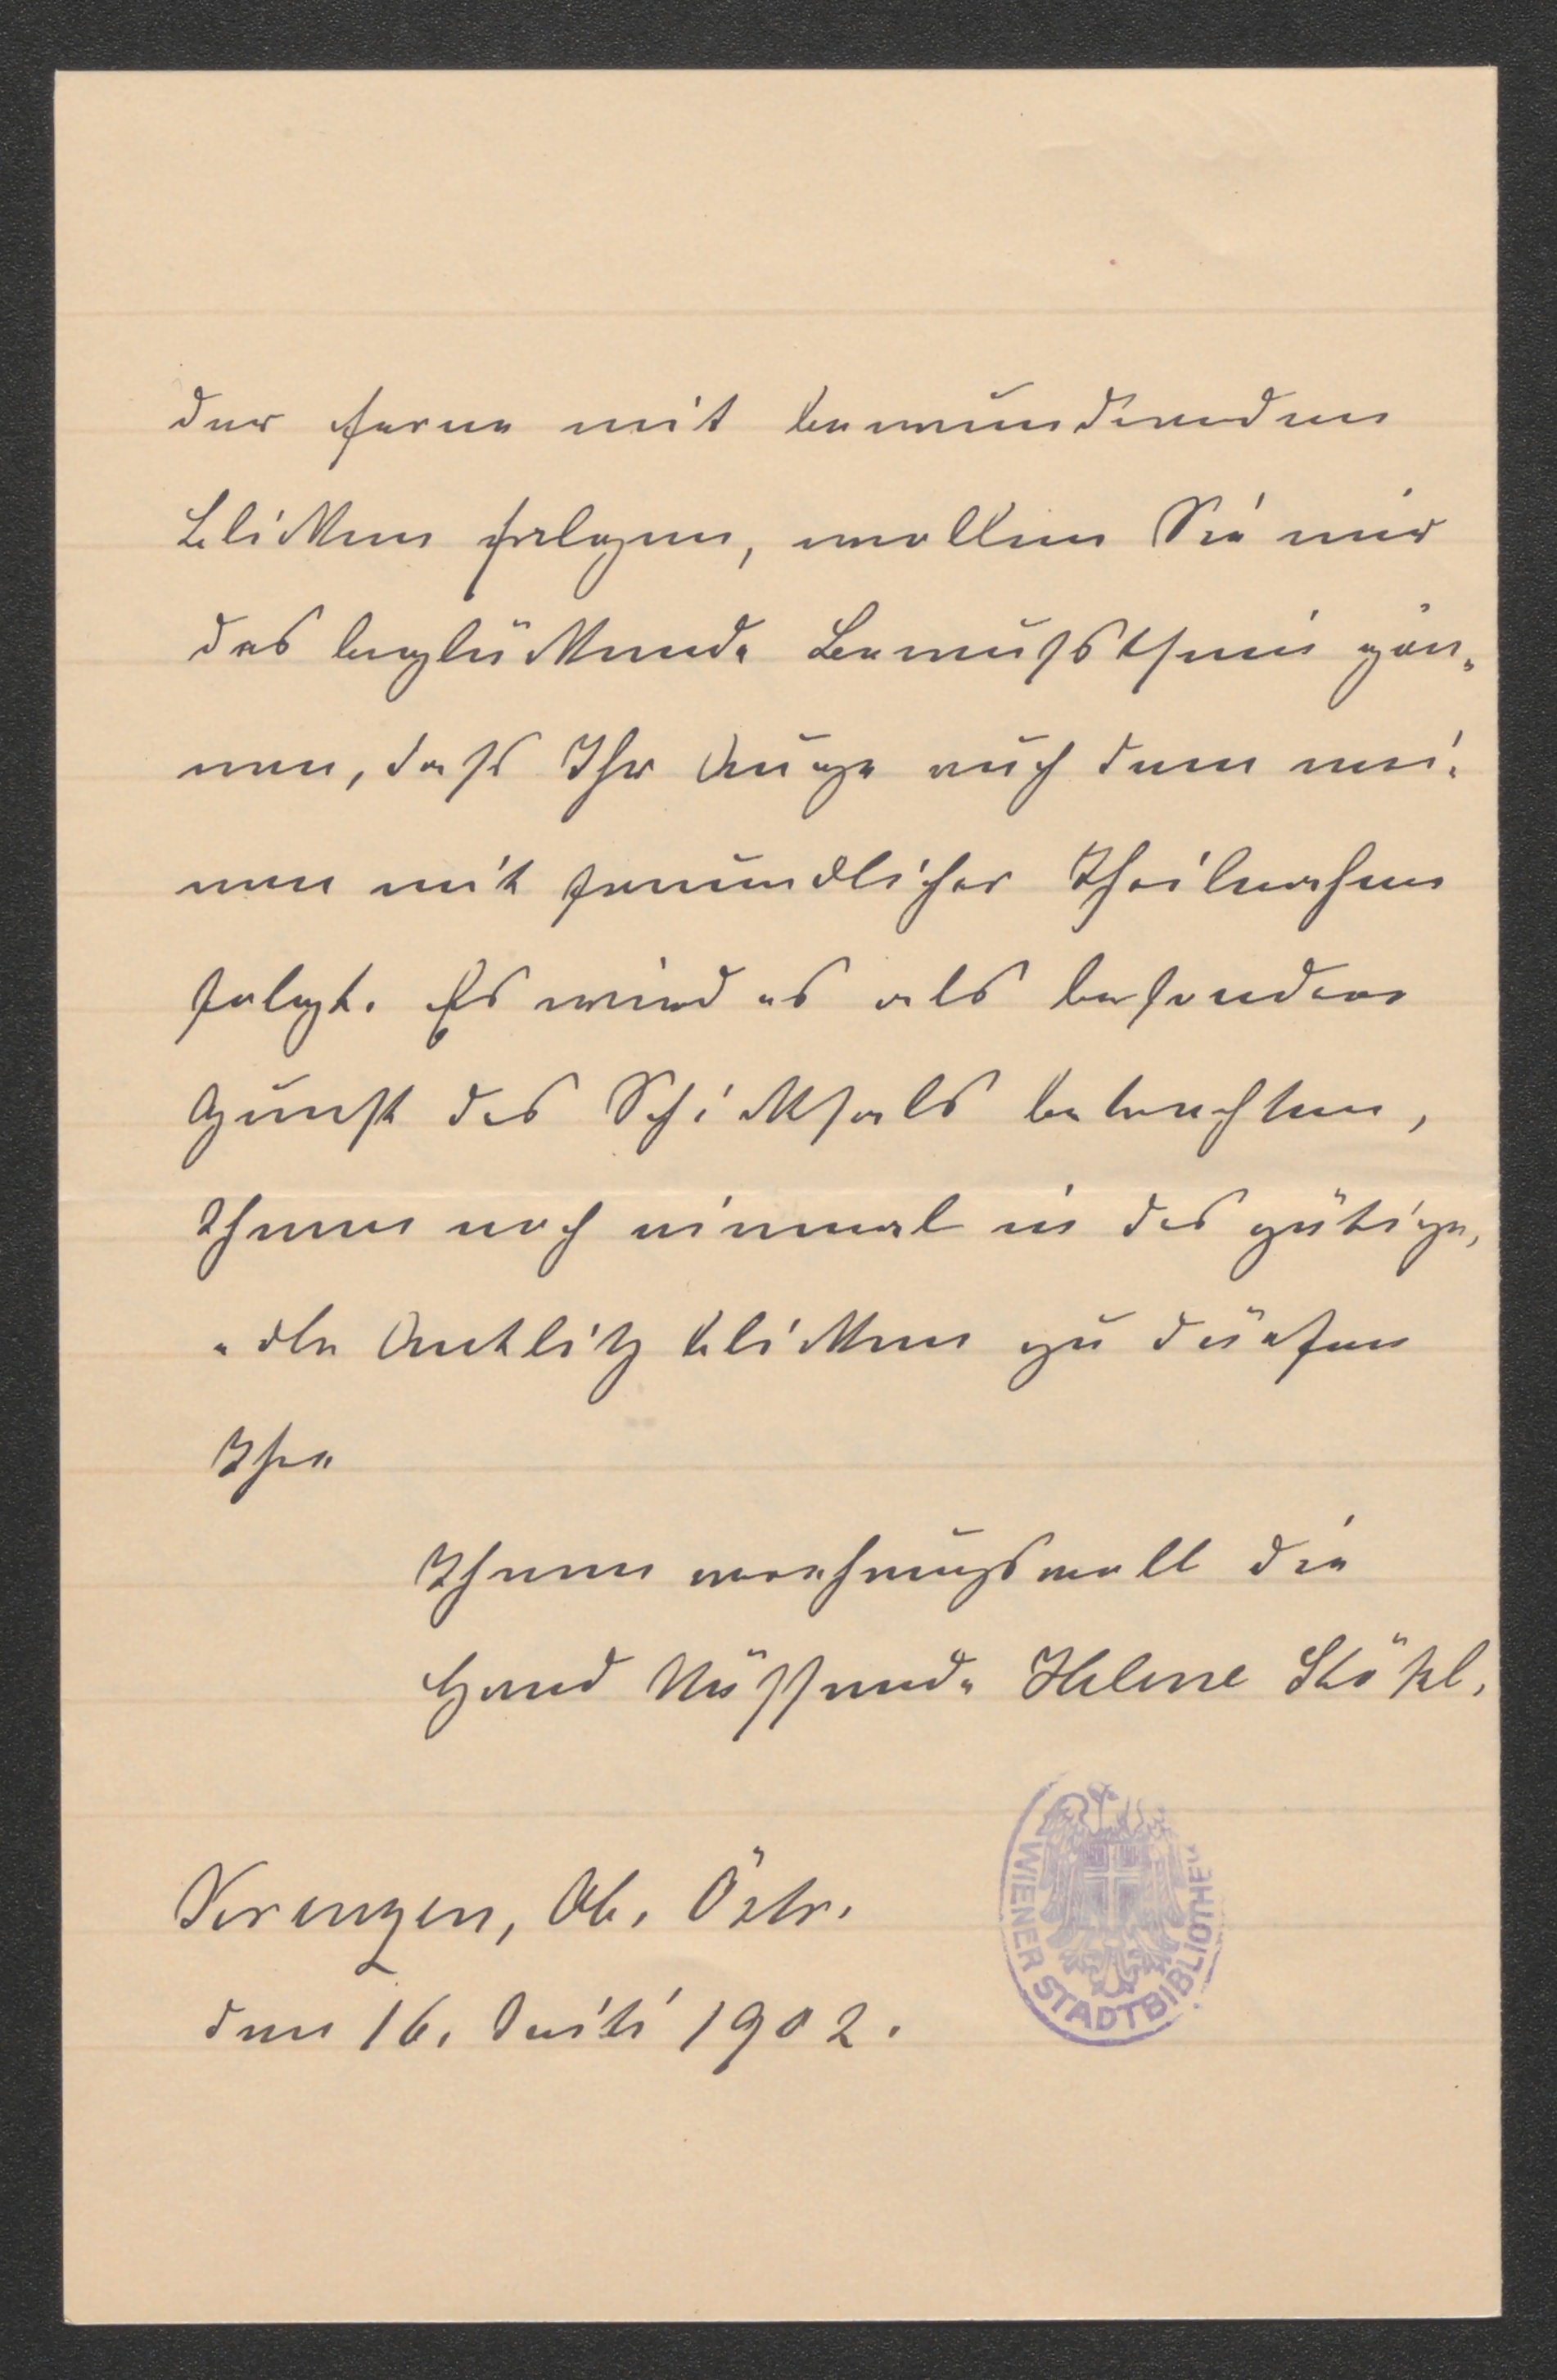 der Ferne mit bewundernden
Blicken folgen, wollen Sie mir
das beglückende Bewußstsein gön-
nen, dass Ihr Auge auch dem mei-
nen mit freundlicher Theilnahme
folgt. Es wird es als besondere
Gunst des Schicksals betrachten,
Ihnen noch einmal in das gütige,
edle Antlitz blicken zu dürfen
Ihre
Ihnen verehrungsvoll die
Hand küssende Helene Stökl.
Ob. Östr.
den 16. Juli 1902.
WIENER STADTBIBLIOTHEK